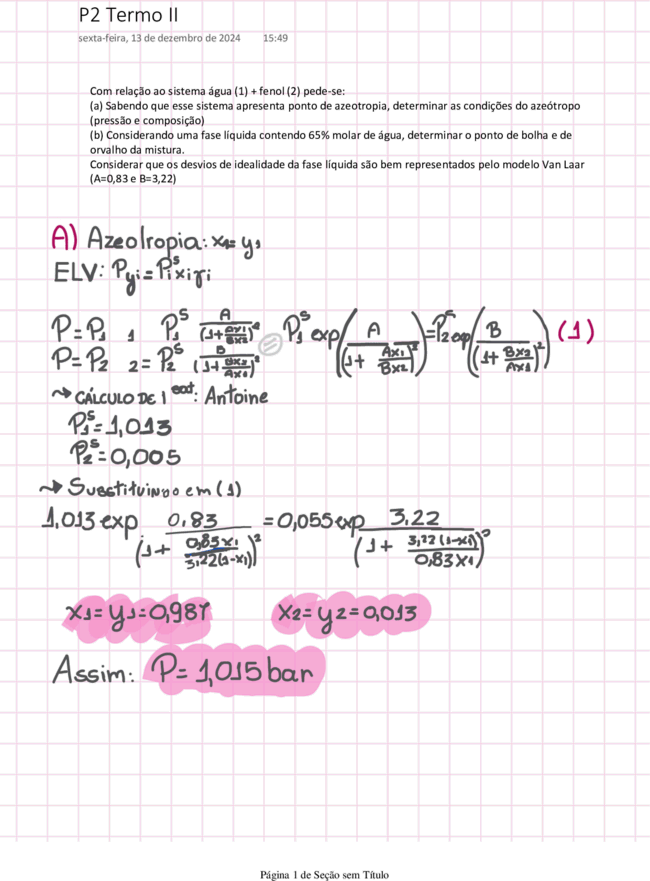 P2 Termo II
sexta-feira, 13 de dezembro de 2024 15:49
Com relação ao sistema água (1) + fenol (2) pede-se:
(a) Sabendo que esse sistema apresenta ponto de azeotropia, determinar as condições do azeótropo
(pressão e composição)
(b) Considerando uma fase líquida contendo 65% molar de água, determinar o ponto de bolha e de
orvalho da mistura.
Considerar que os desvios de idealidade da fase líquida são bem representados pelo modelo Van Laar
(A=0,83 e B=3,22)
A) Azeotropia: x1 = y1
ELV: Pyi = Pi^s xi γi
P = P1 1 P1^s A/(1+Ax1/Bx2)^2 = P1^s exp(A/(1+Ax1/Bx2)^2) = P2^s exp(B/(1+Bx2/Ax1)^2) (1)
P = P2 2 = P2^s B/(1+Bx2/Ax1)^2
↝ CÁLCULO DE 1 sat: Antoine
P1^s = 1,013
P2^s = 0,005
↝ Substituindo em (1)
1,013 exp 0,83/(1+0,83x1/3,22(1-x1))^2 = 0,055 exp 3,22/(1+3,22(1-x1)/0,83x1)^2
x1 = y1 = 0,987 x2 = y2 = 0,013
Assim: P = 1,015 bar
Página 1 de Seção sem Título